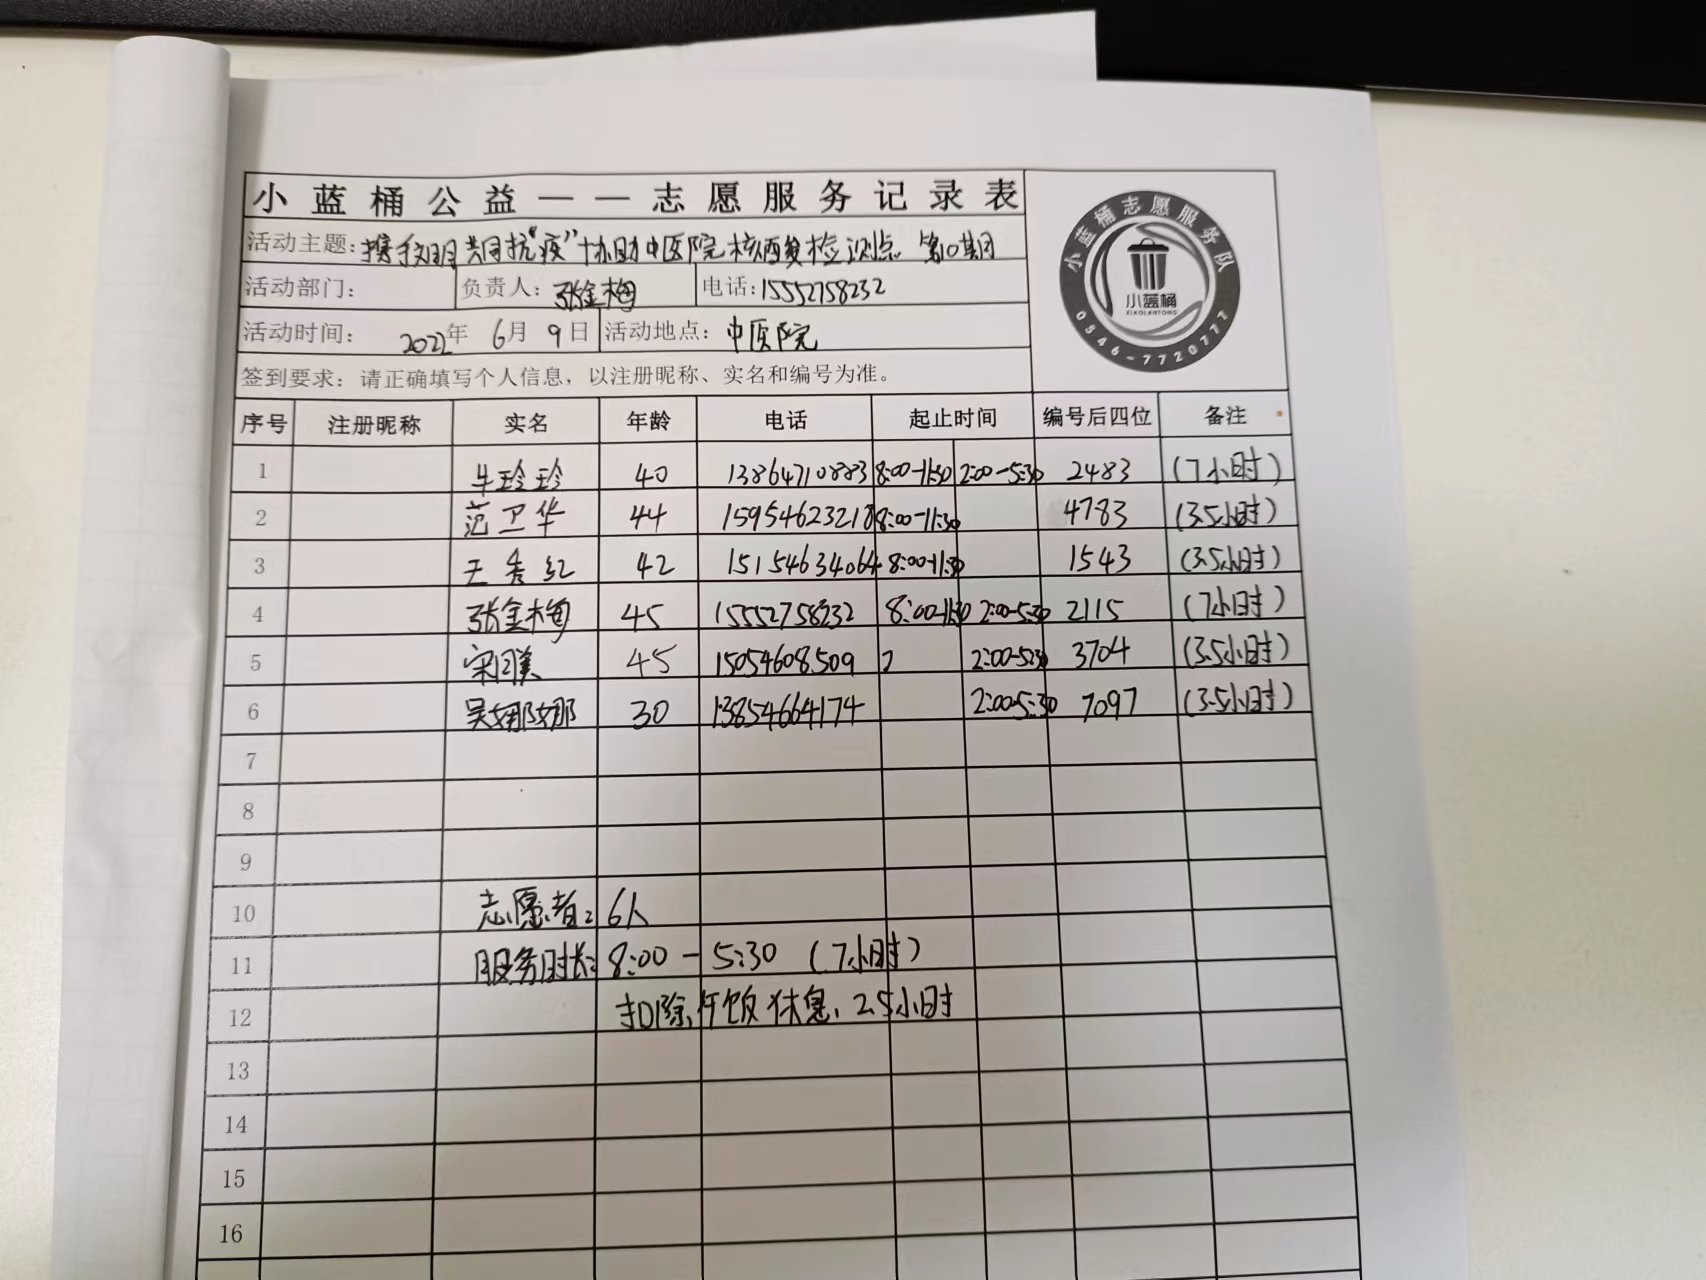 小蓝桶公益——志愿服务记录表
活动主题：携手文明 共同抗“疫”协助中医院核酸检测点 第10期
活动部门： 负责人：张金梅 电话：15552758232
活动时间： 2022年 6月 9日 活动地点：中医院
签到要求：请正确填写个人信息，以注册昵称、实名和编号为准。
小蓝桶志愿服务队
小蓝桶
XIAOLANTONG
0546-7720777
序号 注册昵称 实名 年龄 电话 起止时间 编号后四位 备注
1 牛玲玲 40 13864710883 8:00-11:30 2:00-5:30 2483 (7小时)
2 范卫华 44 15954623218 8:00-11:30 4783 (3.5小时)
3 王秀红 42 15154634064 8:00-11:30 1543 (3.5小时)
4 张金梅 45 15552758232 8:00-11:30 2:00-5:30 2115 (7小时)
5 宋同美 45 15054608509 2 2:00-5:30 3704 (3.5小时)
6 吴娜娜 30 13854664174 2:00-5:30 7097 (3.5小时)
7
8
9
10 志愿者：6人
11 服务时长：8:00-5:30 (7小时)
12 扣除午饭休息，2.5小时
13
14
15
16